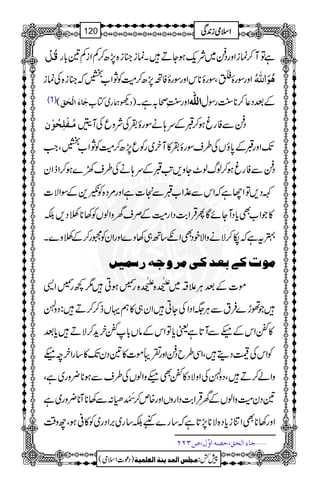 120
اسلامی زندگی
ہے تو آ کر نماز اور دفن میں شریک ہو جاتے ہیں۔ نماز جنازہ پڑھ کر کم از کم تین بار قُلْ
هُوَ اللّٰهُ اور سورۂ فلق، سورۂ ناس اور سورۂ فاتحہ پڑھ کر میت کو ثواب بخشیں کہ جنازہ کی نماز
کے بعد دعا کرنا سنتِ رسول اللہ اور سنتِ صحابہ ہے۔ (دیکھو ہماری کتاب جاءَ الحق) (۲)
دفن سے فارغ ہو کر قبر کے سرہانے سورۂ بقر کی شروع کی آیتیں مُفْلِحُوْنَ
تک اور قبر کے پاؤں کی طرف سورۂ بقر کا آخری رکوع پڑھ کر میت کو ثواب بخشیں، جب
دفن سے فارغ ہو کر لوگ لوٹ جاویں تب قبر کے سرہانے کی طرف کھڑے ہو کر اذان
کہہ دیں تو اچھا ہے کہ اس سے عذاب قبر سے نجات ہے اور مردہ کو نکیرین کے سوالات
کا جواب بھی یاد آ جائے گا پھر قرابت دار میت کے صرف گھر والوں کو کھانا دیں بلکہ
بہتر یہ ہے کہ پکا کر لانے والا خود بھی انکے ساتھ ہی کھاوے اور ان کو مجبور کر کے کھلاوے۔
موت کے بعد کی مروجہ رسمیں
موت کے بعد ہر علاقہ میں علیٰحدہ علیٰحدہ رسمیں ہوتی ہیں مگر کچھ رسمیں ایسی
ہیں جو تھوڑے فرق سے ہر جگہ ادا کی جاتی ہیں ان ہی کا ہم یہاں ذکر کرتے ہیں: دلہن
کا کفن اس کے میکے سے آتا ہے یعنی یا تو اس کے ماں باپ کفن خرید کر لاتے ہیں یا بعد
کو اس کی قیمت دیتے ہیں، اسی طرح دفن اور تقریباً موت کا تین دن تک کا سارا خرچہ میکے
والے کرتے ہیں، دلہن کی اولاد کا کفن بھی میکے والوں کی طرف سے ہونا ضروری ہے،
تین دن میت والوں کے گھر قرابت داروں اور خاص کر سمدھیانہ سے کھانا آنا ضروری ہے
اور کھانا بھی اتنا زیادہ لانا پڑتا ہے کہ سارے کنبے بلکہ ساری برادری کو کافی ہو، چھ وقت
.....جاء الحق، حصہ اوّل، ص ۲۲۳
پیش کش: مجلس المدینۃ العلمیۃ (دعوتِ اسلامی)